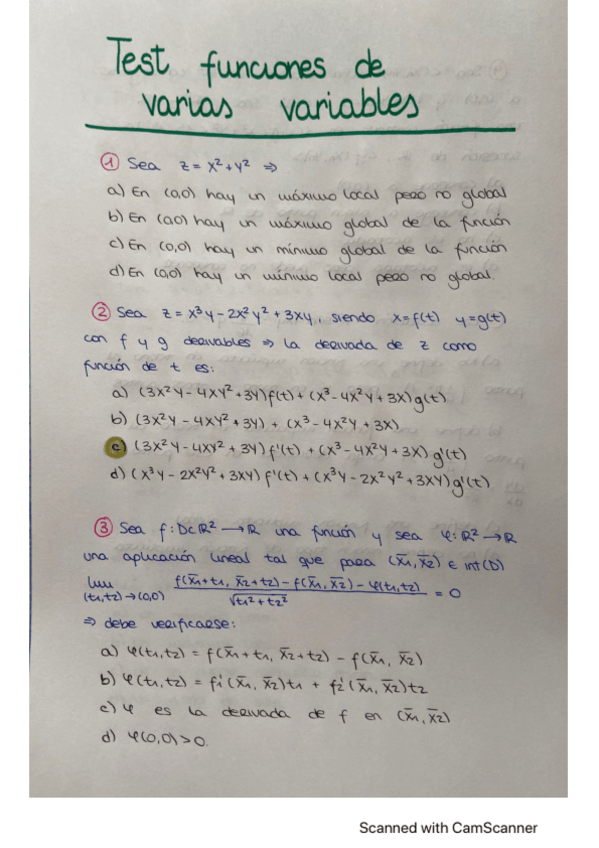 Test funciones de
varias variables
1 Sea z = x² + y² ⇒
a) En (0,0) hay un máximo local pero no global
b) En (0,0) hay un máximo global de la función
c) En (0,0) hay un mínimo global de la función
d) En (0,0) hay un mínimo local pero no global.
2 Sea z = x³y - 2x²y² + 3xy, siendo x=f(t) y=g(t)
con f y g derivables ⇒ la derivada de z como
función de t es:
a) (3x²y - 4xy² + 3y) f(t) + (x³ - 4x²y + 3x) g(t)
b) (3x²y - 4xy² + 3y) + (x³ - 4x²y + 3x)
c) (3x²y - 4xy² + 3y) f'(t) + (x³ - 4x²y + 3x) g'(t)
d) (x³y - 2x²y² + 3xy) f'(t) + (x³y - 2x²y² + 3xy) g'(t)
3 Sea f: D⊂ℝ² → ℝ una función y sea φ: ℝ² → ℝ
una aplicación lineal tal que para (x̄1, x̄2) ∈ int(D)
lim (t1,t2)→(0,0) f(x̄1+t1, x̄2+t2) - f(x̄1, x̄2) - φ(t1,t2) / √t1² + t2² = 0
⇒ debe verificarse:
a) φ(t1,t2) = f(x̄1+t1, x̄2+t2) - f(x̄1, x̄2)
b) φ(t1,t2) = f1'(x̄1, x̄2)t1 + f2'(x̄1, x̄2)t2
c) φ es la derivada de f en (x̄1, x̄2)
d) φ(0,0)>0.
Scanned with CamScanner